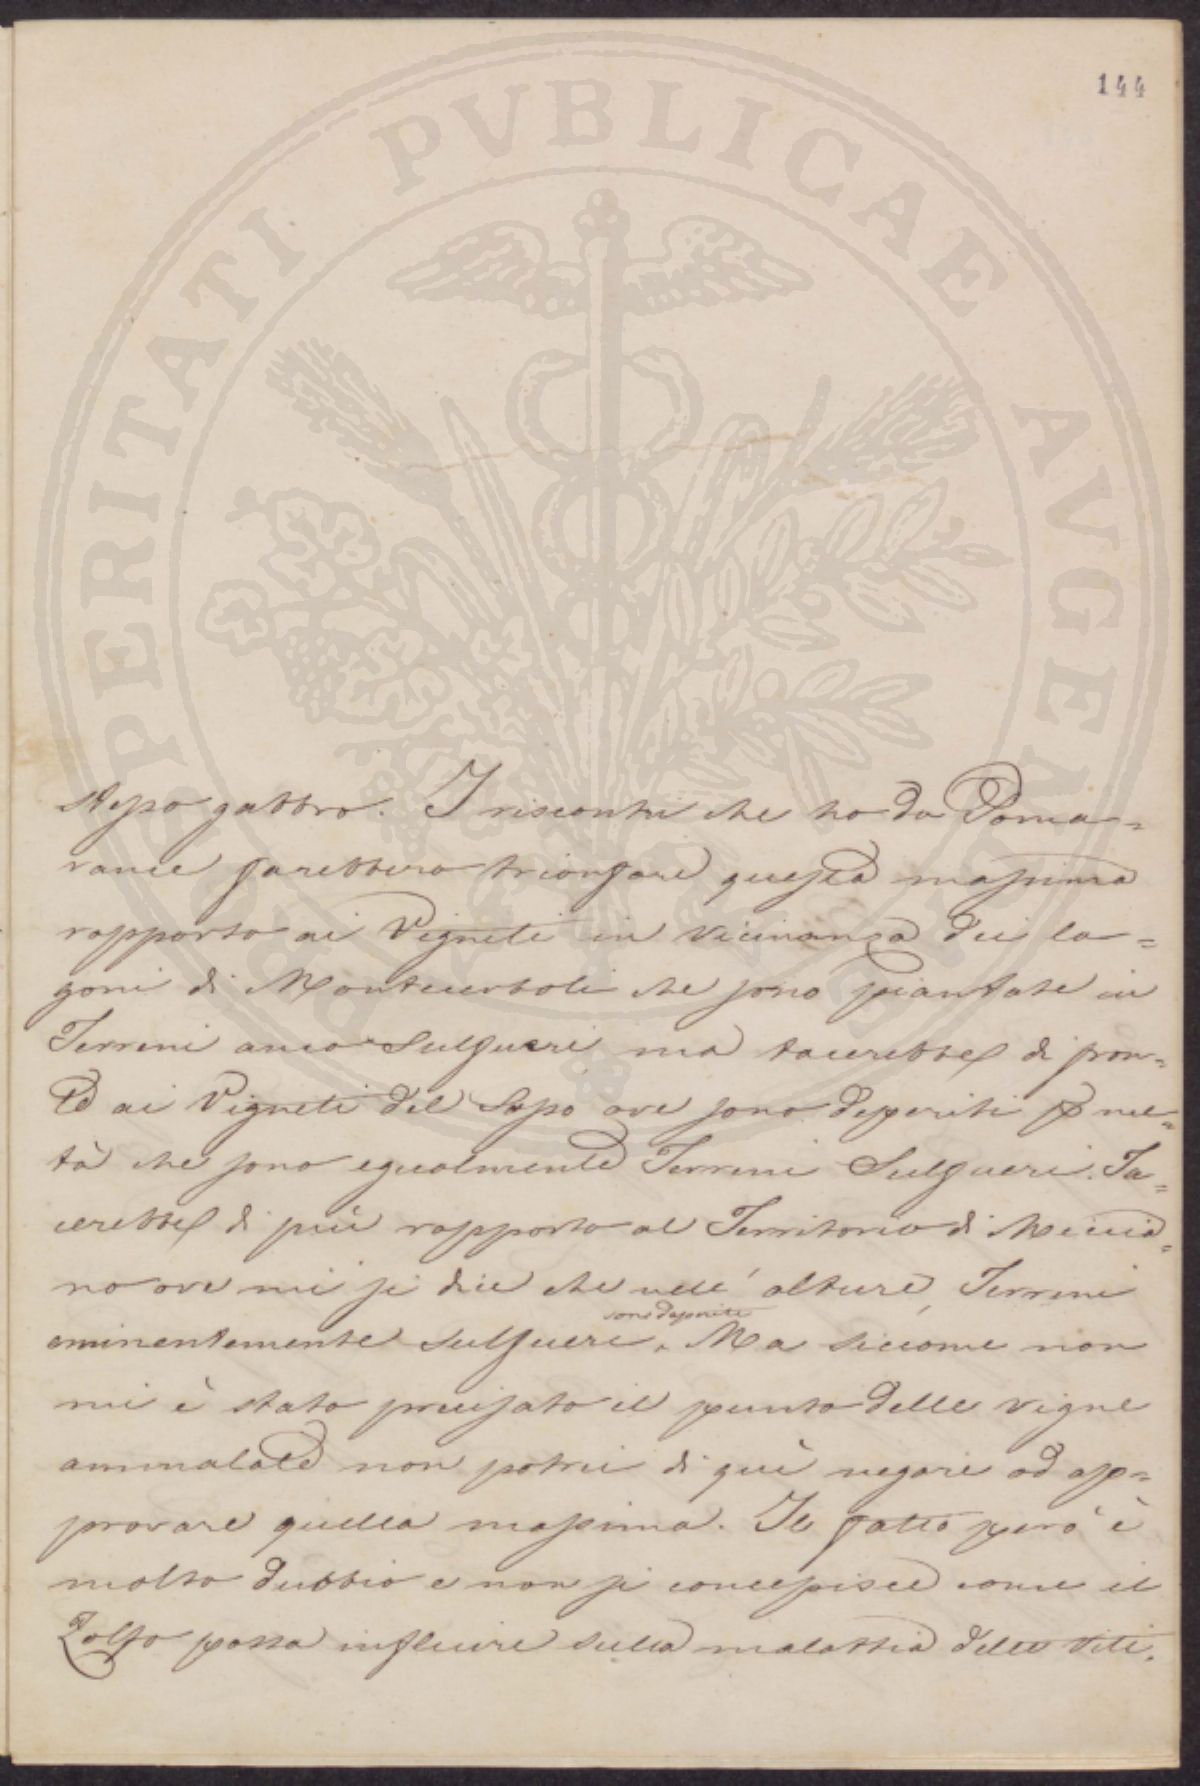 144
PROSPERITATI PVBLICAE AVGENDAE
stesso gabbro. I riscontri che ho da Poma=
rance farebbero trionfare questa massima
rapporto ai Vigneti in vicinanza dei la=
goni di Montecerboli che sono piantate in
Terreni anco Sulfurei ma tacerebbe di fron=
te ai Vigneti del Sasso ove sono deperiti p me=
tà che sono egualmente Terreni Sulfurei. Ta=
cerebbe di più rapporto al Territorio di Miccia=
no ove mi si dice che nell' alture, Terreni
sono deperite
eminentemente sulfurei, Ma siccome non
mi è stato precisato il punto delle vigne
ammalate non potrei di quì negare od ap=
provare quella massima. Il fatto però è
molto dubbio e non si concepisce come il
Zolfo possa influire sulla malattia delle viti.